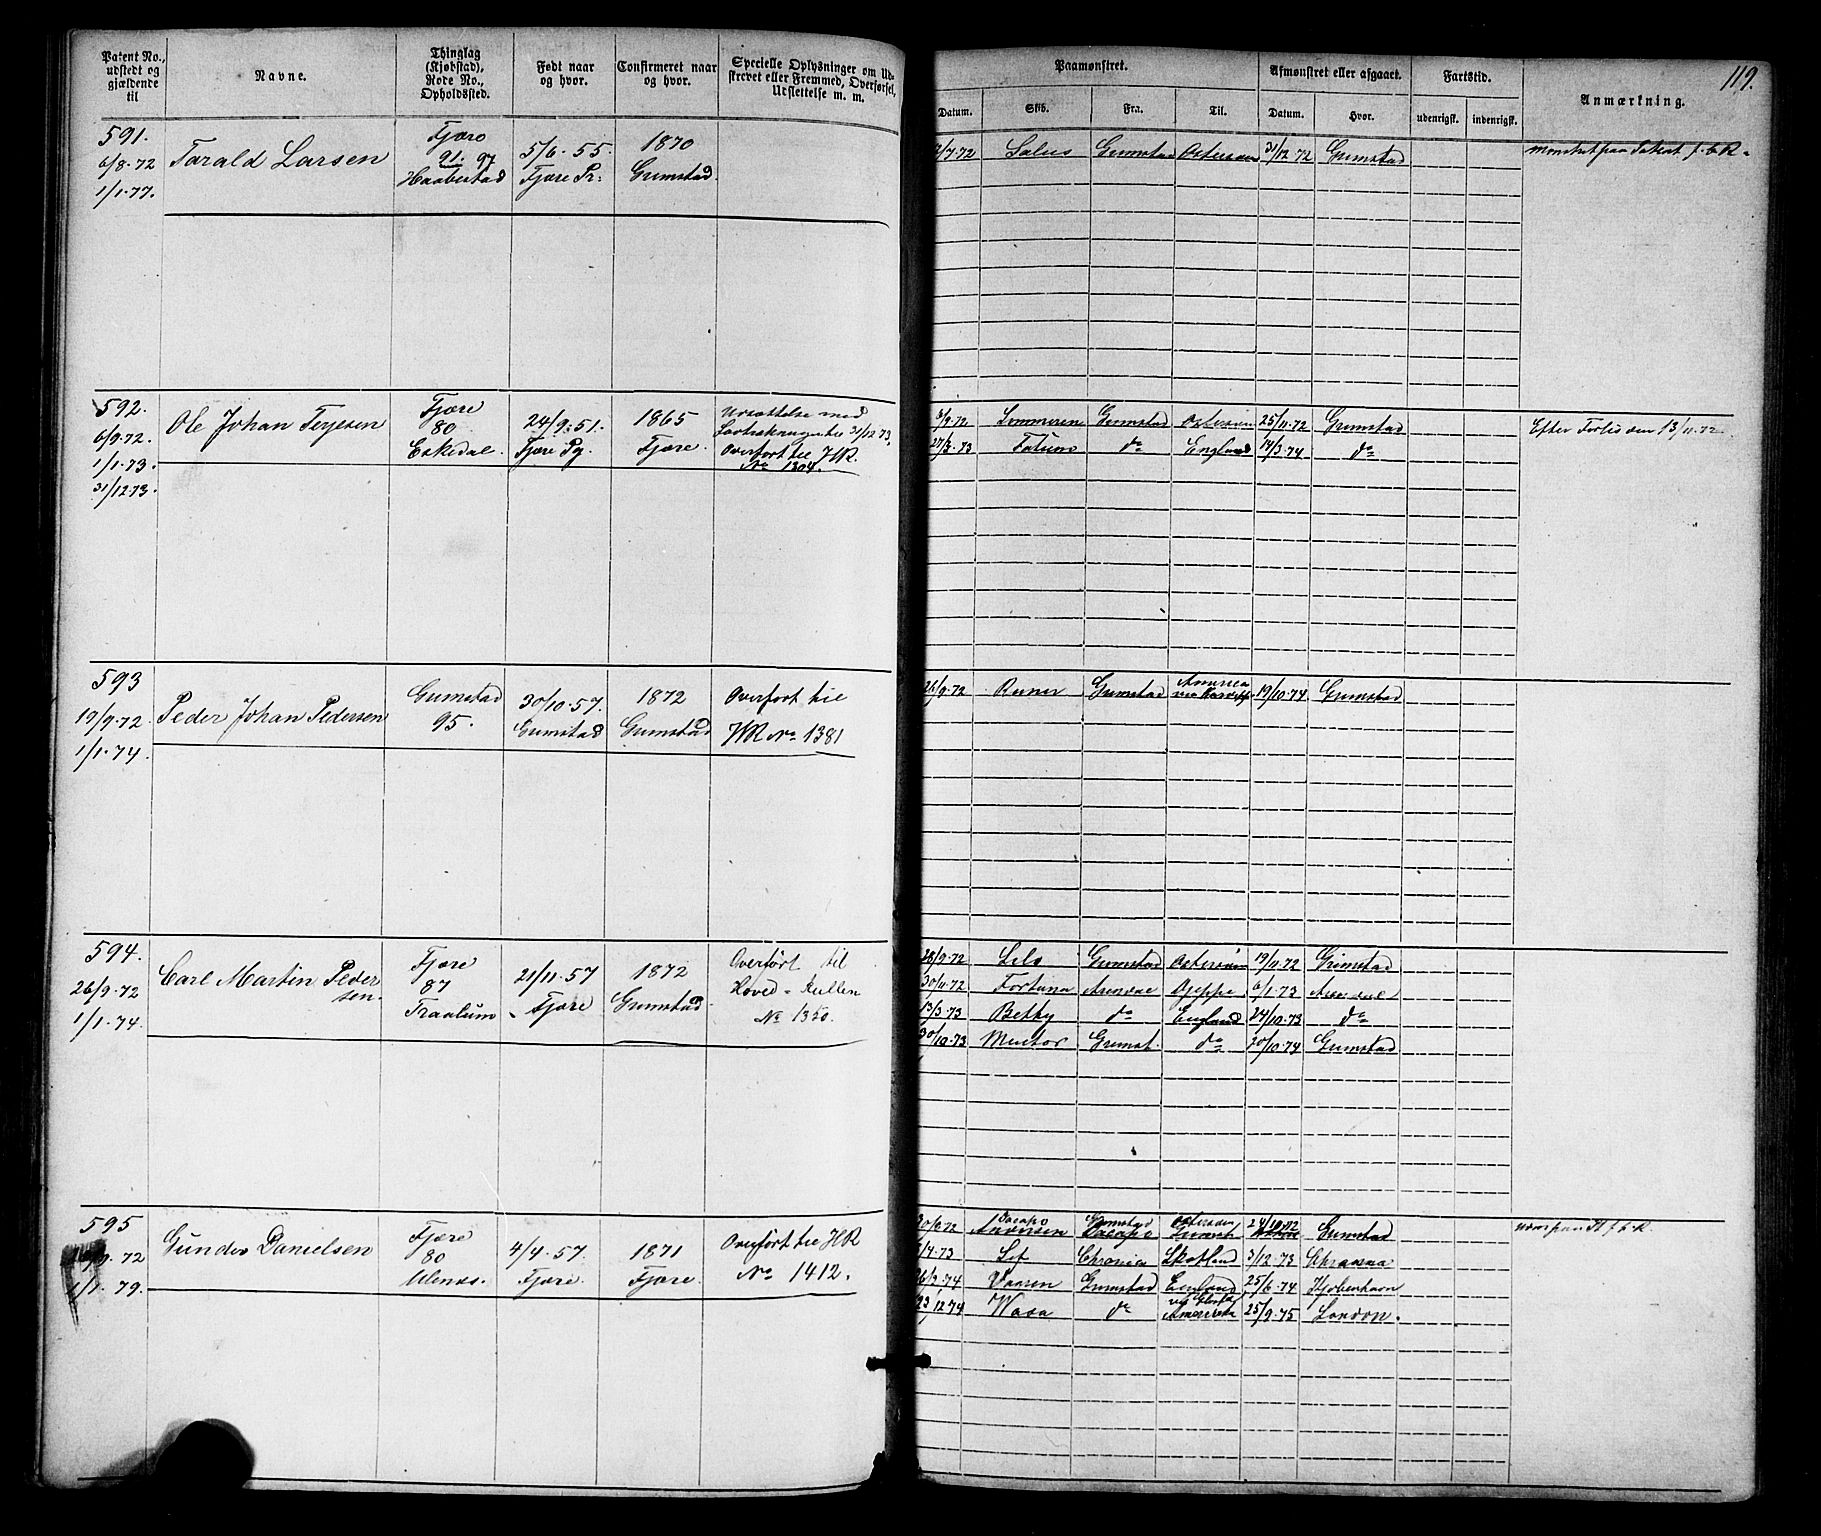 119.
Patent No., udstedt og gjældende til
Navne.
Thinglag (Kjøbstad), Rode No., Opholdssted.
Født naar og hvor.
Confirmeret naar og hvor.
Specielle Oplysninger om Ud- skrevet eller Fremmed, Overførsel, Udslettelse m. m.
Paamønstret.
Datum. Skib. Fra. Til.
Afmønstret eller afgaaet.
Datum. Hvor.
Fartstid.
udenrigsk. indenrigsk.
Anmærkning.
591.
6/8 72
1/1. 77.
Tarald Larsen
Fjære
91. 97
5/6. 55.
Fjære Pr.
1870
Grimstad.
Salus Grimstad Østersøen 31/12 72 Grimstad
592.
6/9. 72.
1/1. 73.
31/12 73.
Ole Johan Terjesen
Fjære
80
Eskedal.
24/9. 51.
Fjære Pg.
1865
Fjære.
Overført til HR.
No 1304.
3/9. 72 Grimstad Østersøen 25/11. 72 Grimstad
27/3. 73 Fatum do England 19/3. 74 do
Efter Forlis den 13/11. 72.
593
17/9. 72
1/1. 74.
Peder Johan Pedersen
Grimstad
95.
30/10. 57.
Grimstad
1872
Grimstad
Overført til
HR No 1381
26/9. 72 Grimstad 19/10. 74 Grimstad
594.
26/9. 72
1/1. 74.
Carl Martin Peder
sen.
Fjære
87
Traalum
21/11. 57
Fjære
1872
Grimstad
Overført til
Hoved-Rullen
No 1350.
28/9. 72 Grimstad Østersøen 19/11. 72 Grimstad
30/11. 72 Fortuna Arendal Dieppe 6/1. 73 Arendal
13/3. 73 Betty do England 24/10. 73 do
30/10. 73 Mentor Grimst. do 20/10. 74 Grimstad
595
1/1. 79.
Gunder Danielsen
Fjære
80
4/4. 57.
Fjære.
1871
Fjære.
Overført til HR
No 1412.
30/9. 72 Grimstad Østersøen 24/10. 72 Grimstad
Sif Skotland 3/12. 73
26/3. 74 Vaaren Grimstad England 25/6. 74 Kjøbenhavn
23/12 74 Wasa do Amerika 25/9. 75 London.